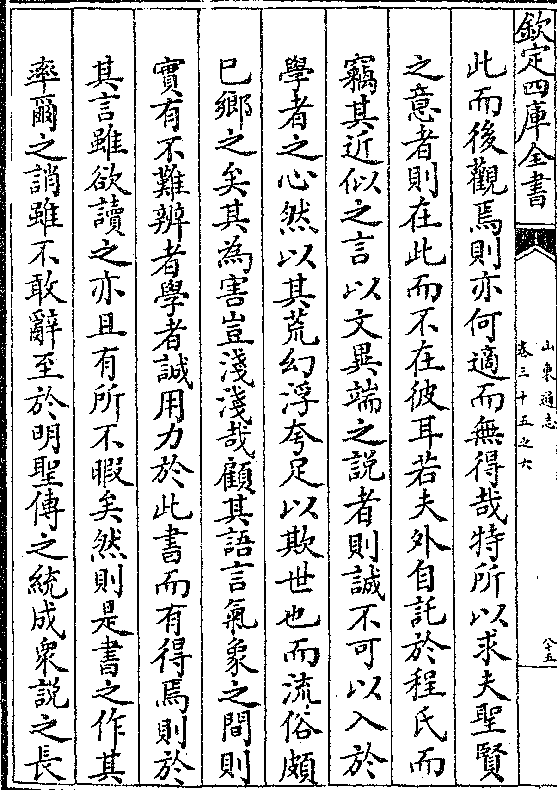 欽定四庫全書
山東通志
卷三十五之六
八十五
此而後觀焉則亦何適而無得哉特所以求夫聖賢
之意者則在此而不在彼耳若夫外自託於程氏而
竊其近似之言以文異端之說者則誠不可以入於
學者之心然以其荒幻浮夸足以欺世也而流俗頗
已鄉之矣其為害豈淺淺哉顧其語言氣象之間則
實有不難辨者學者誠用力於此書而有得焉則於
其言雖欲讀之亦且有所不暇矣然則是書之作其
率爾之誚雖不敢辭至於明聖傳之統成衆說之長